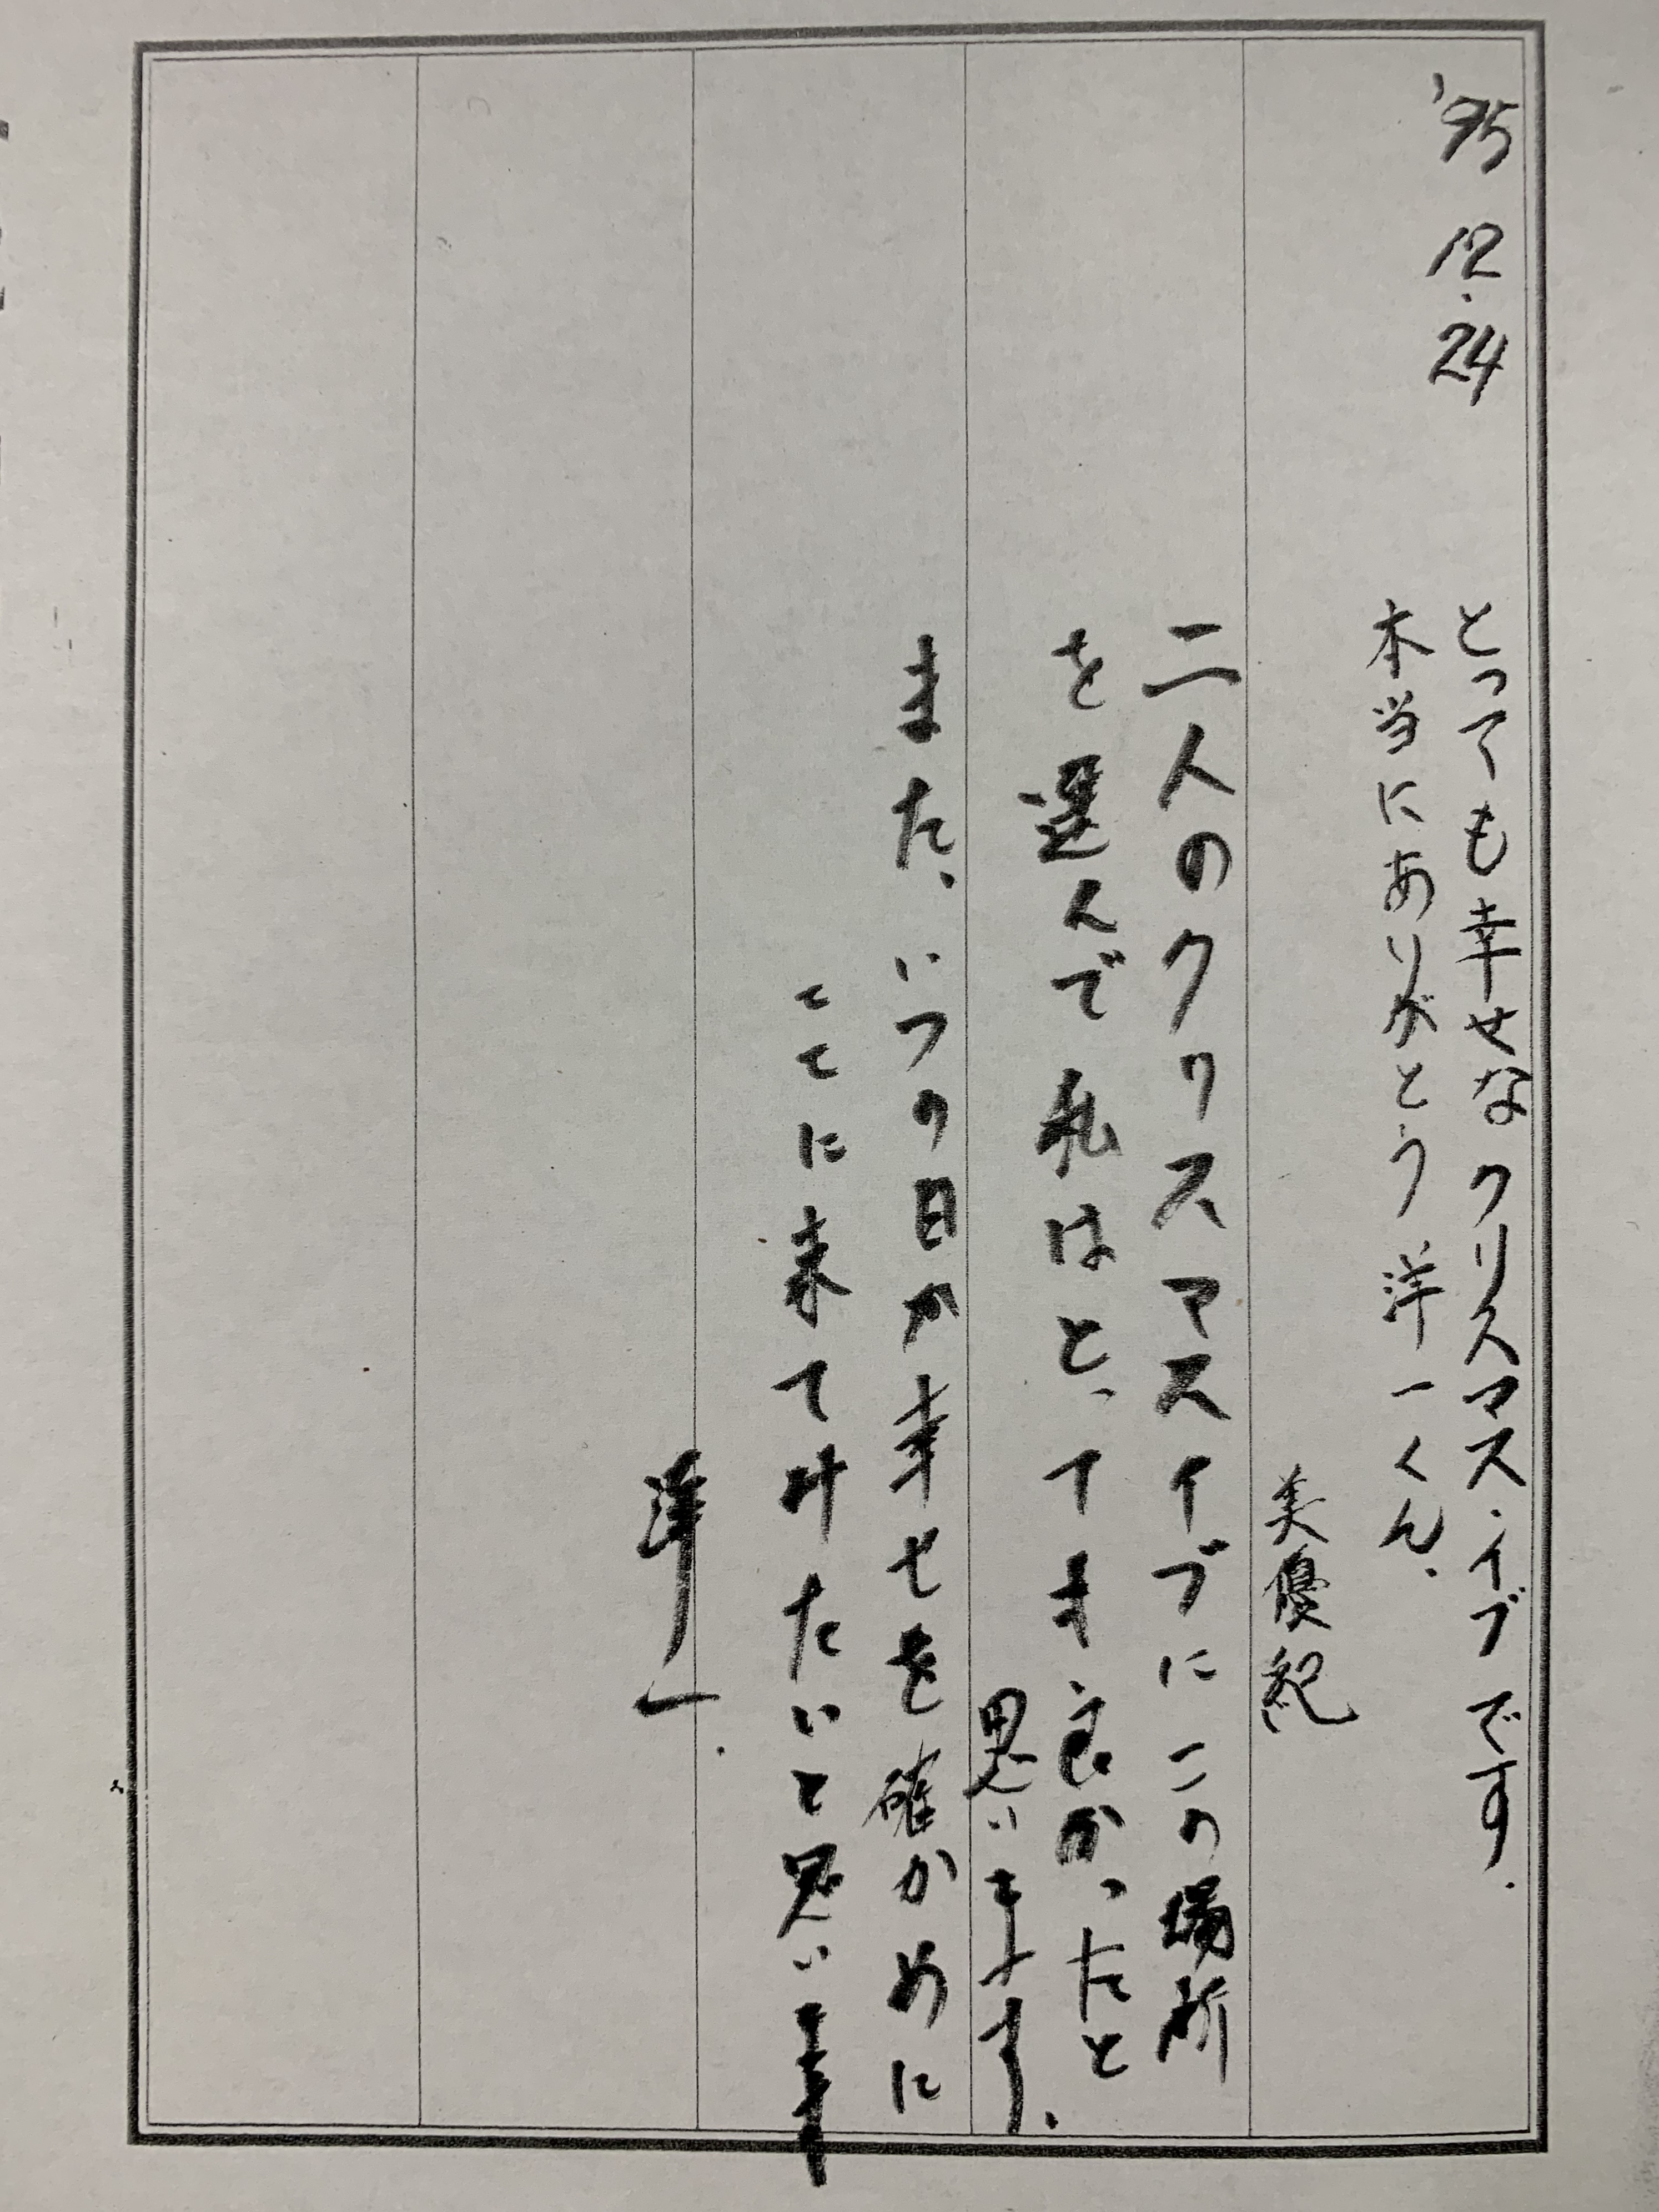 '95 12.24
とっても幸せなクリスマス・イブです.
本当にありがとう洋一くん.
美優紀
二人のクリスマスイブにこの場所
を選んで私はとっても良かったと
思います.
また、いつの日か幸せを確かめに
ここに来てみたいと思います
洋一.